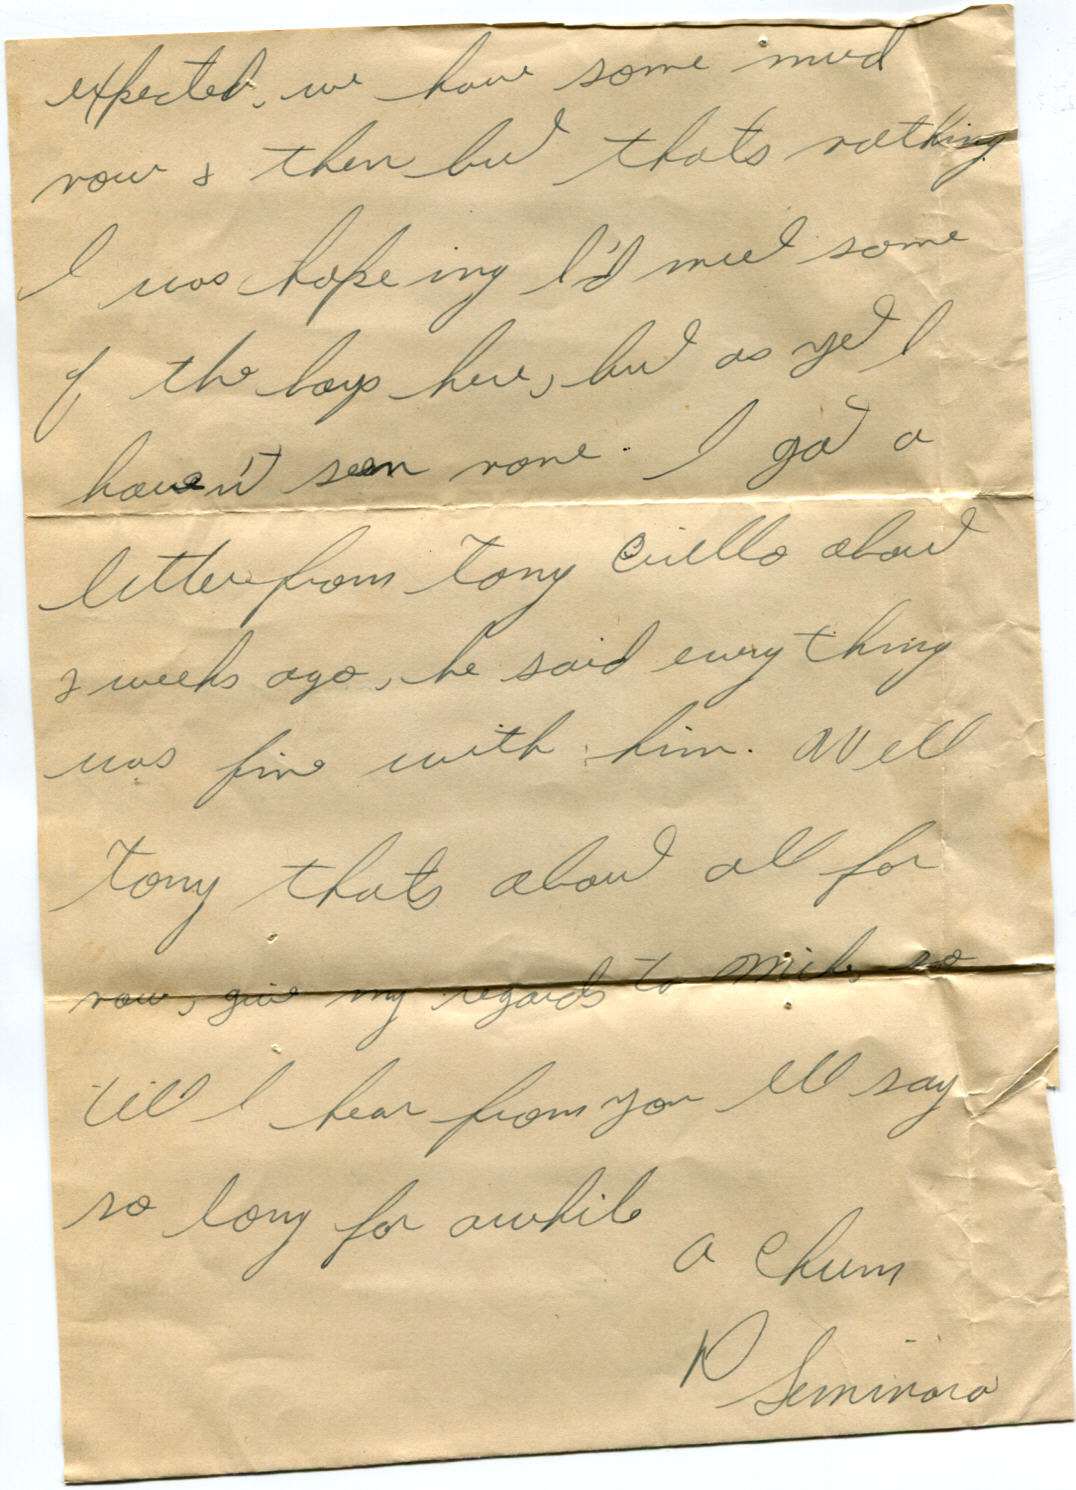 expected, we have some mud
now & then but thats nothing
I was hope ing I'd meet some
of the boys here, but as yet I
haven't seen none. I got a
letter from Tony Cirello about
2 weeks ago, he said everything
was fine with him. Well
Tony thats about all for
now, give my regards to Mike, so
'till I hear from you Ill say
so long for awhile
a Chum
P Seminara